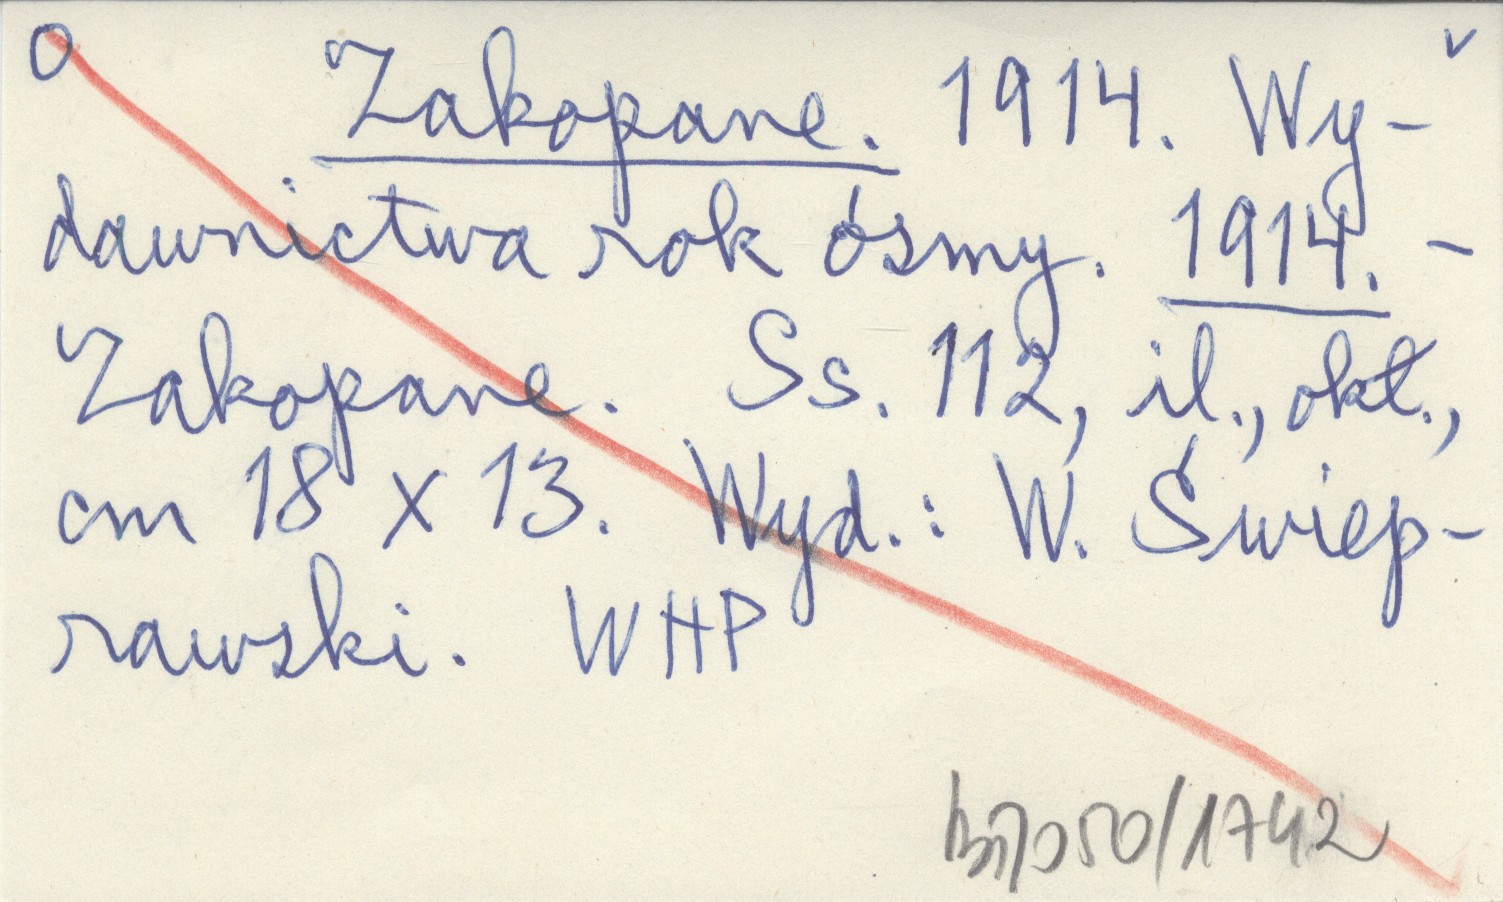 O Zakopane. 1914. Wy- v
dawnictwa rok ósmy. 1914. -
Zakopane. Ss. 112, il., okł.,
cm 18 x 13. Wyd.: W. Świep-
rawski. WHP
050/1742